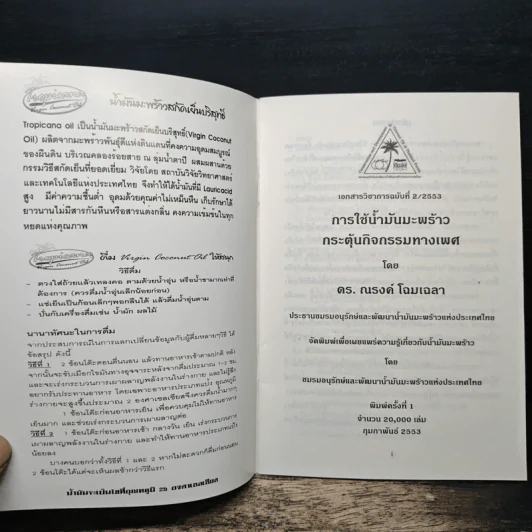 Tropicana
Virgin Coconut Oil
น้ำมันมะพร้าวสกัดเย็นบริสุทธิ์
Tropicana oil เป็นน้ำมันมะพร้าวสกัดเย็นบริสุทธิ์(Virgin Coconut
Oil) ผลิตจากมะพร้าวพันธุ์ดีแห่งดินแดนที่คงความอุดมสมบูรณ์
ของผืนดิน บริเวณคลองร้อยสาย ณ ลุ่มน้ำตาปี ผสมผสานด้วย
กรรมวิธีสกัดเย็นที่ยอดเยี่ยม วิจัยโดย สถาบันวิจัยวิทยาศาสตร์
และเทคโนโลยีแห่งประเทศไทย จึงทำให้ได้น้ำมันที่มี Lauricacid
สูง มีค่าความชื้นต่ำ อุดมด้วยคุณค่าไม่เหม็นหืน เก็บรักษาได้
ยาวนานไม่มีสารกันหืนหรือสารแต่งกลิ่น คงความเข้มข้นในทุก
หยดแห่งคุณภาพ
ดื่ม Virgin Coconut Oil ให้สนุก
วิธีดื่ม
- ตวงใส่ถ้วยแล้วเทลงคอ ตามด้วยน้ำอุ่น หรือน้ำชามากเท่าที่
ต้องการ (ควรดื่มน้ำอุ่นเล็กน้อยก่อน)
- แช่เย็นเป็นก้อนเล็กๆพอกลืนได้ แล้วดื่มน้ำอุ่นตาม
- ปั่นกับเครื่องดื่มเช่น น้ำผัก ผลไม้
นานาทัศนะในการดื่ม
จากประสบการณ์ในการแลกเปลี่ยนข้อมูลกับผู้ดื่มหลายๆวิธี ได้
ข้อสรุป ดังนี้
วิธีที่ 1 2 ช้อนโต๊ะตอนตื่นนอน แล้วทานอาหารเช้าตามปกติ หลัง
วิธีที่ 2 1 ช้อนโต๊ะก่อนอาหารเช้า กลางวัน เย็น เร่งกระบวนการ
เผาผลาญพลังงานในร่างกาย และทำให้ทานอาหารประเภทแป้ง
น้อยลง
บางคนบอกว่าทั้งวิธีที่ 1 และ 2 หากไม่สะดวกก็ดื่มก่อนนอน
2 ช้อนโต๊ะได้แต่จะเห็นผลช้ากว่าวิธีแรก
น้ำมันจะเป็นไขที่อุณหภูมิ 25 องศาเซลเซียส
เอกสารวิชาการฉบับที่ 2/2553
การใช้น้ำมันมะพร้าว
กระตุ้นกิจกรรมทางเพศ
โดย
ดร. ณรงค์ โฉมเฉลา
ประธานชมรมอนุรักษ์และพัฒนาน้ำมันมะพร้าวแห่งประเทศไทย
จัดพิมพ์เพื่อเผยแพร่ความรู้เกี่ยวกับน้ำมันมะพร้าว
โดย
ชมรมอนุรักษ์และพัฒนาน้ำมันมะพร้าวแห่งประเทศไทย
พิมพ์ครั้งที่ 1
จำนวน 20,000 เล่ม
กุมภาพันธ์ 2553